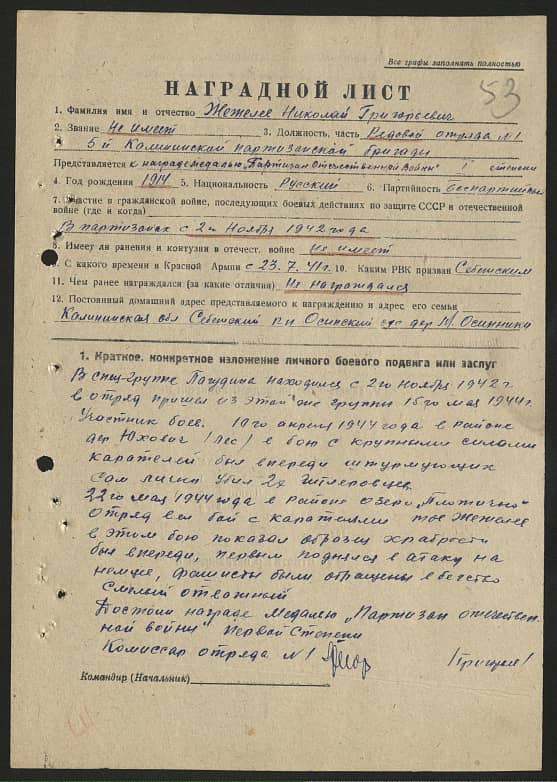 Все графы заполнять полностью
53
НАГРАДНОЙ ЛИСТ
1. Фамилия имя и отчество Жетелев Николай Григорьевич
2. Звание Не имеет 3. Должность, часть Рядовой отряда №1
5й Калининской партизанской бригады
Представляется к награде медалью „Партизан Отечественной Войны" I степени
4. Год рождения 1914 5. Национальность Русский 6. Партийность беспартийный
7. Участие в гражданской войне, последующих боевых действиях по защите СССР и отечественной
войне (где и когда)
В партизанах с 2го Ноября 1942 года
8. Имеет ли ранения и контузии в отечест. войне Не имеет
9. С какого времени в Красной Армии с 23.7.41г. 10. Каким РВК призван Себежским
11. Чем ранее награждался (за какие отличия) Не награждался
12. Постоянный домашний адрес представляемого к награждению и адрес его семьи
Калининская обл Себежский р-н Осинский с/с дер М. Осинники
1. Краткое, конкретное изложение личного боевого подвига или заслуг
В спец-группе находился с 2го Ноября 1942 г.
в отряд пришел из этой же группы 15го мая 1944г.
Участник боев. 19го апреля 1944 года в районе
дер Юховичи /лес/ в бою с крупными силами
карателей был впереди штурмующих
Сам лично убил 2х гитлеровцев.
22го мая 1944 года в районе озеро
Отряд вел бой с карателями тов Жетелев
в этом бою показал образец храбрости
был впереди, первым поднялся в атаку на
немцев, фашисты были обращены в бегство
Смелый отважный
Достоин награде Медалью „Партизан отечествен-
ной войны" первой Степени
Комиссар отряда №1
Командир (Начальник)